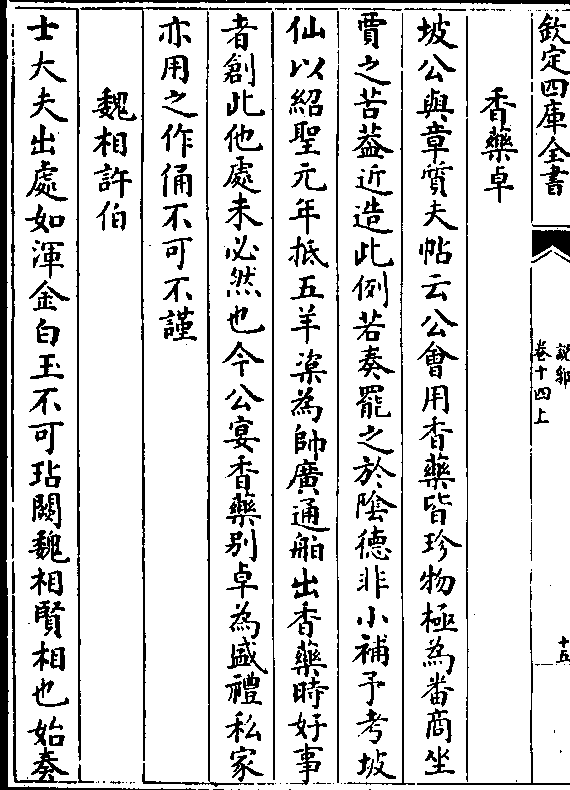 欽定四庫全書
說郛
卷十四上
十五
香藥卓
坡公與章質夫帖云公會用香藥皆珍物極為番商坐
賈之苦葢近造此例若奏罷之於陰德非小補予考坡
仙以紹聖元年抵五羊楶為帥廣通舶出香藥時好事
者創此他處未必然也今公宴香藥别卓為盛禮私家
亦用之作俑不可不謹
魏相許伯
士大夫出處如渾金白玉不可玷闕魏相賢相也始奏